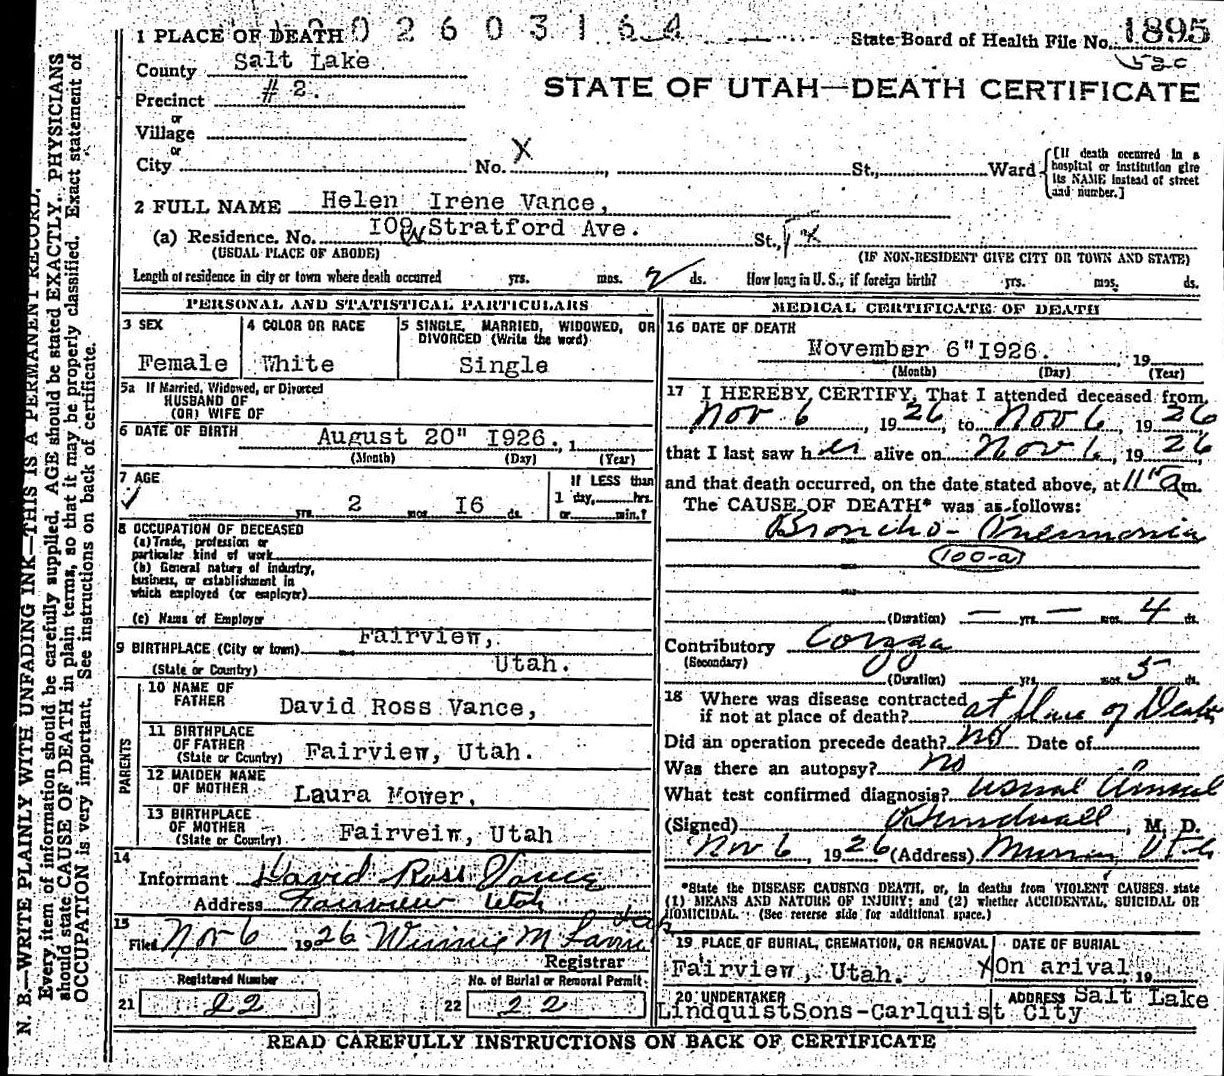 1 PLACE OF DEATH 0 2 6 0 3 1 6 4
State Board of Health File No. 1895
County Salt Lake
Precinct # 2.
STATE OF UTAH—DEATH CERTIFICATE
or
Village
or
City No. X St., Ward
[If death occurred in a hospital or institution give its NAME instead of street and number.]
2 FULL NAME Helen Irene Vance,
(a) Residence. No. I09 W Stratford Ave. St., X
(USUAL PLACE OF ABODE) (IF NON-RESIDENT GIVE CITY OR TOWN AND STATE)
Length of residence in city or town where death occurred yrs. mos. 2 ds. How long in U. S., if foreign birth? yrs. mos. ds.
PERSONAL AND STATISTICAL PARTICULARS
3 SEX Female
4 COLOR OR RACE White
5 SINGLE, MARRIED, WIDOWED, OR DIVORCED (Write the word) Single
5a If Married, Widowed, or Divorced
HUSBAND OF
(OR) WIFE OF
6 DATE OF BIRTH August 20" I926., 1
(Month) (Day) (Year)
7 AGE
yrs. 2 mos. I6 ds.
If LESS than
1 day, hrs.
or min.?
8 OCCUPATION OF DECEASED
(a) Trade, profession or
particular kind of work
(b) General nature of industry,
business, or establishment in
which employed (or employer)
(c) Name of Employer
9 BIRTHPLACE (City or town) Fairview,
(State or Country) Utah.
PARENTS
10 NAME OF FATHER David Ross Vance,
11 BIRTHPLACE OF FATHER (State or Country) Fairview, Utah.
12 MAIDEN NAME OF MOTHER Laura Mower,
13 BIRTHPLACE OF MOTHER (State or Country) Fairveiw, Utah
14
Informant David Ross Vance
Address Fairview Utah
15
Filed Nov 6 1926 Winnie M
Registrar
Registered Number
21 22
No. of Burial or Removal Permit
22 22
MEDICAL CERTIFICATE OF DEATH
16 DATE OF DEATH
November 6" I926. 19
(Month) (Day) (Year)
17 I HEREBY CERTIFY, That I attended deceased from
Nov 6, 1926, to Nov 6, 1926
that I last saw her alive on Nov 6, 1926,
and that death occurred, on the date stated above, at 11 am.
The CAUSE OF DEATH* was as follows:
Broncho-Pneumonia
(100-a)
(Duration) — yrs. — mos. 4 ds.
Contributory Coryza
(Secondary)
(Duration) yrs. mos. 5 ds.
18 Where was disease contracted
if not at place of death? at Place of Death
Did an operation precede death? no Date of
Was there an autopsy? no
What test confirmed diagnosis? usual
(Signed) , M. D.
Nov 6, 1926 (Address) Murray Utah
*State the DISEASE CAUSING DEATH, or, in deaths from VIOLENT CAUSES, state
(1) MEANS AND NATURE OF INJURY; and (2) whether ACCIDENTAL, SUICIDAL OR
HOMICIDAL. (See reverse side for additional space.)
19 PLACE OF BURIAL, CREMATION, OR REMOVAL Fairview, Utah.
DATE OF BURIAL X On arival, 19
20 UNDERTAKER LindquistSons-Carlquist
ADDRESS Salt Lake City
READ CAREFULLY INSTRUCTIONS ON BACK OF CERTIFICATE
N. B.—WRITE PLAINLY WITH UNFADING INK—THIS IS A PERMANENT RECORD.
Every item of information should be carefully supplied. AGE should be stated EXACTLY. PHYSICIANS
should state CAUSE OF DEATH in plain terms, so that it may be properly classified. Exact statement of
OCCUPATION is very important. See instructions on back of certificate.